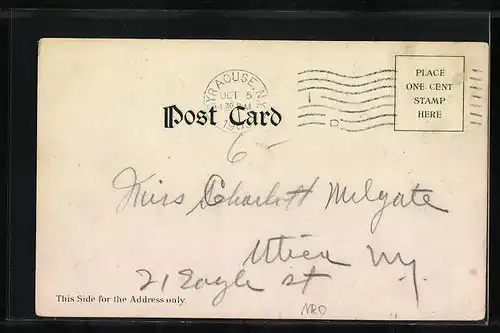 SYRACUSE, N.Y.
OCT 5
PLACE
ONE CENT
STAMP
HERE
Post Card
6-
Miss Charlott Milgate
Utica Ny.
21 Eagle st
This Side for the Address only.